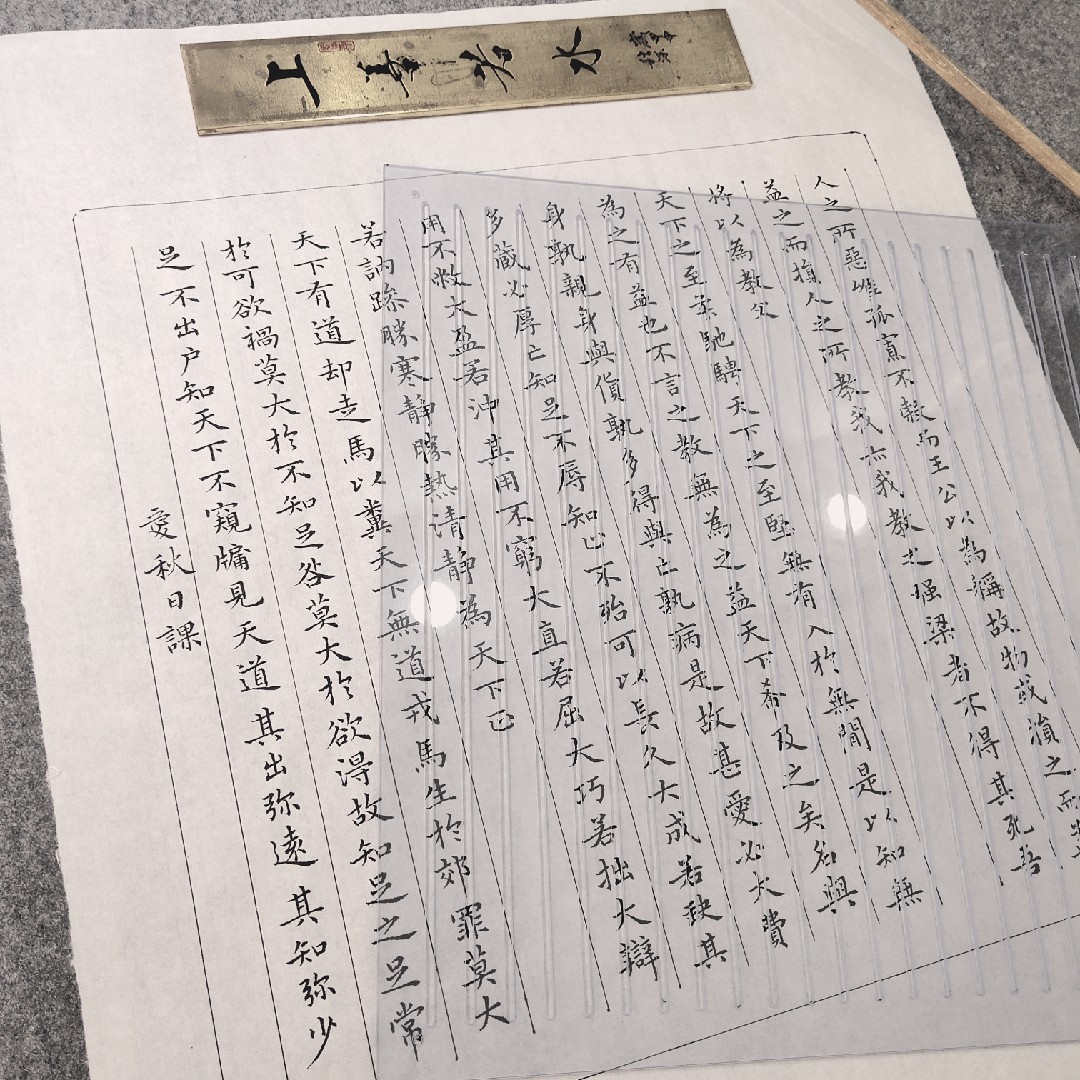 上善若水
人之所惡惟孤寡不穀而王公以為稱故物或損之而
益之而損人之所教我亦我教之强梁者不得其死吾
將以為教父
天下之至柔馳騁天下之至堅無有入於無間是以知無
為之有益也不言之教無為之益天下希及之矣名與
身孰親身與貨孰多得與亡孰病是故甚愛必大費
多藏必厚亡知足不辱知止不殆可以長久大成若缺其
用不敝大盈若沖其用不窮大直若屈大巧若拙大辯
若訥躁勝寒靜勝熱清靜為天下正
天下有道却走馬以糞天下無道戎馬生於郊罪莫大
於可欲禍莫大於不知足咎莫大於欲得故知足之足常
足不出户知天下不窺牖見天道其出弥遠其知弥少
愛秋日課